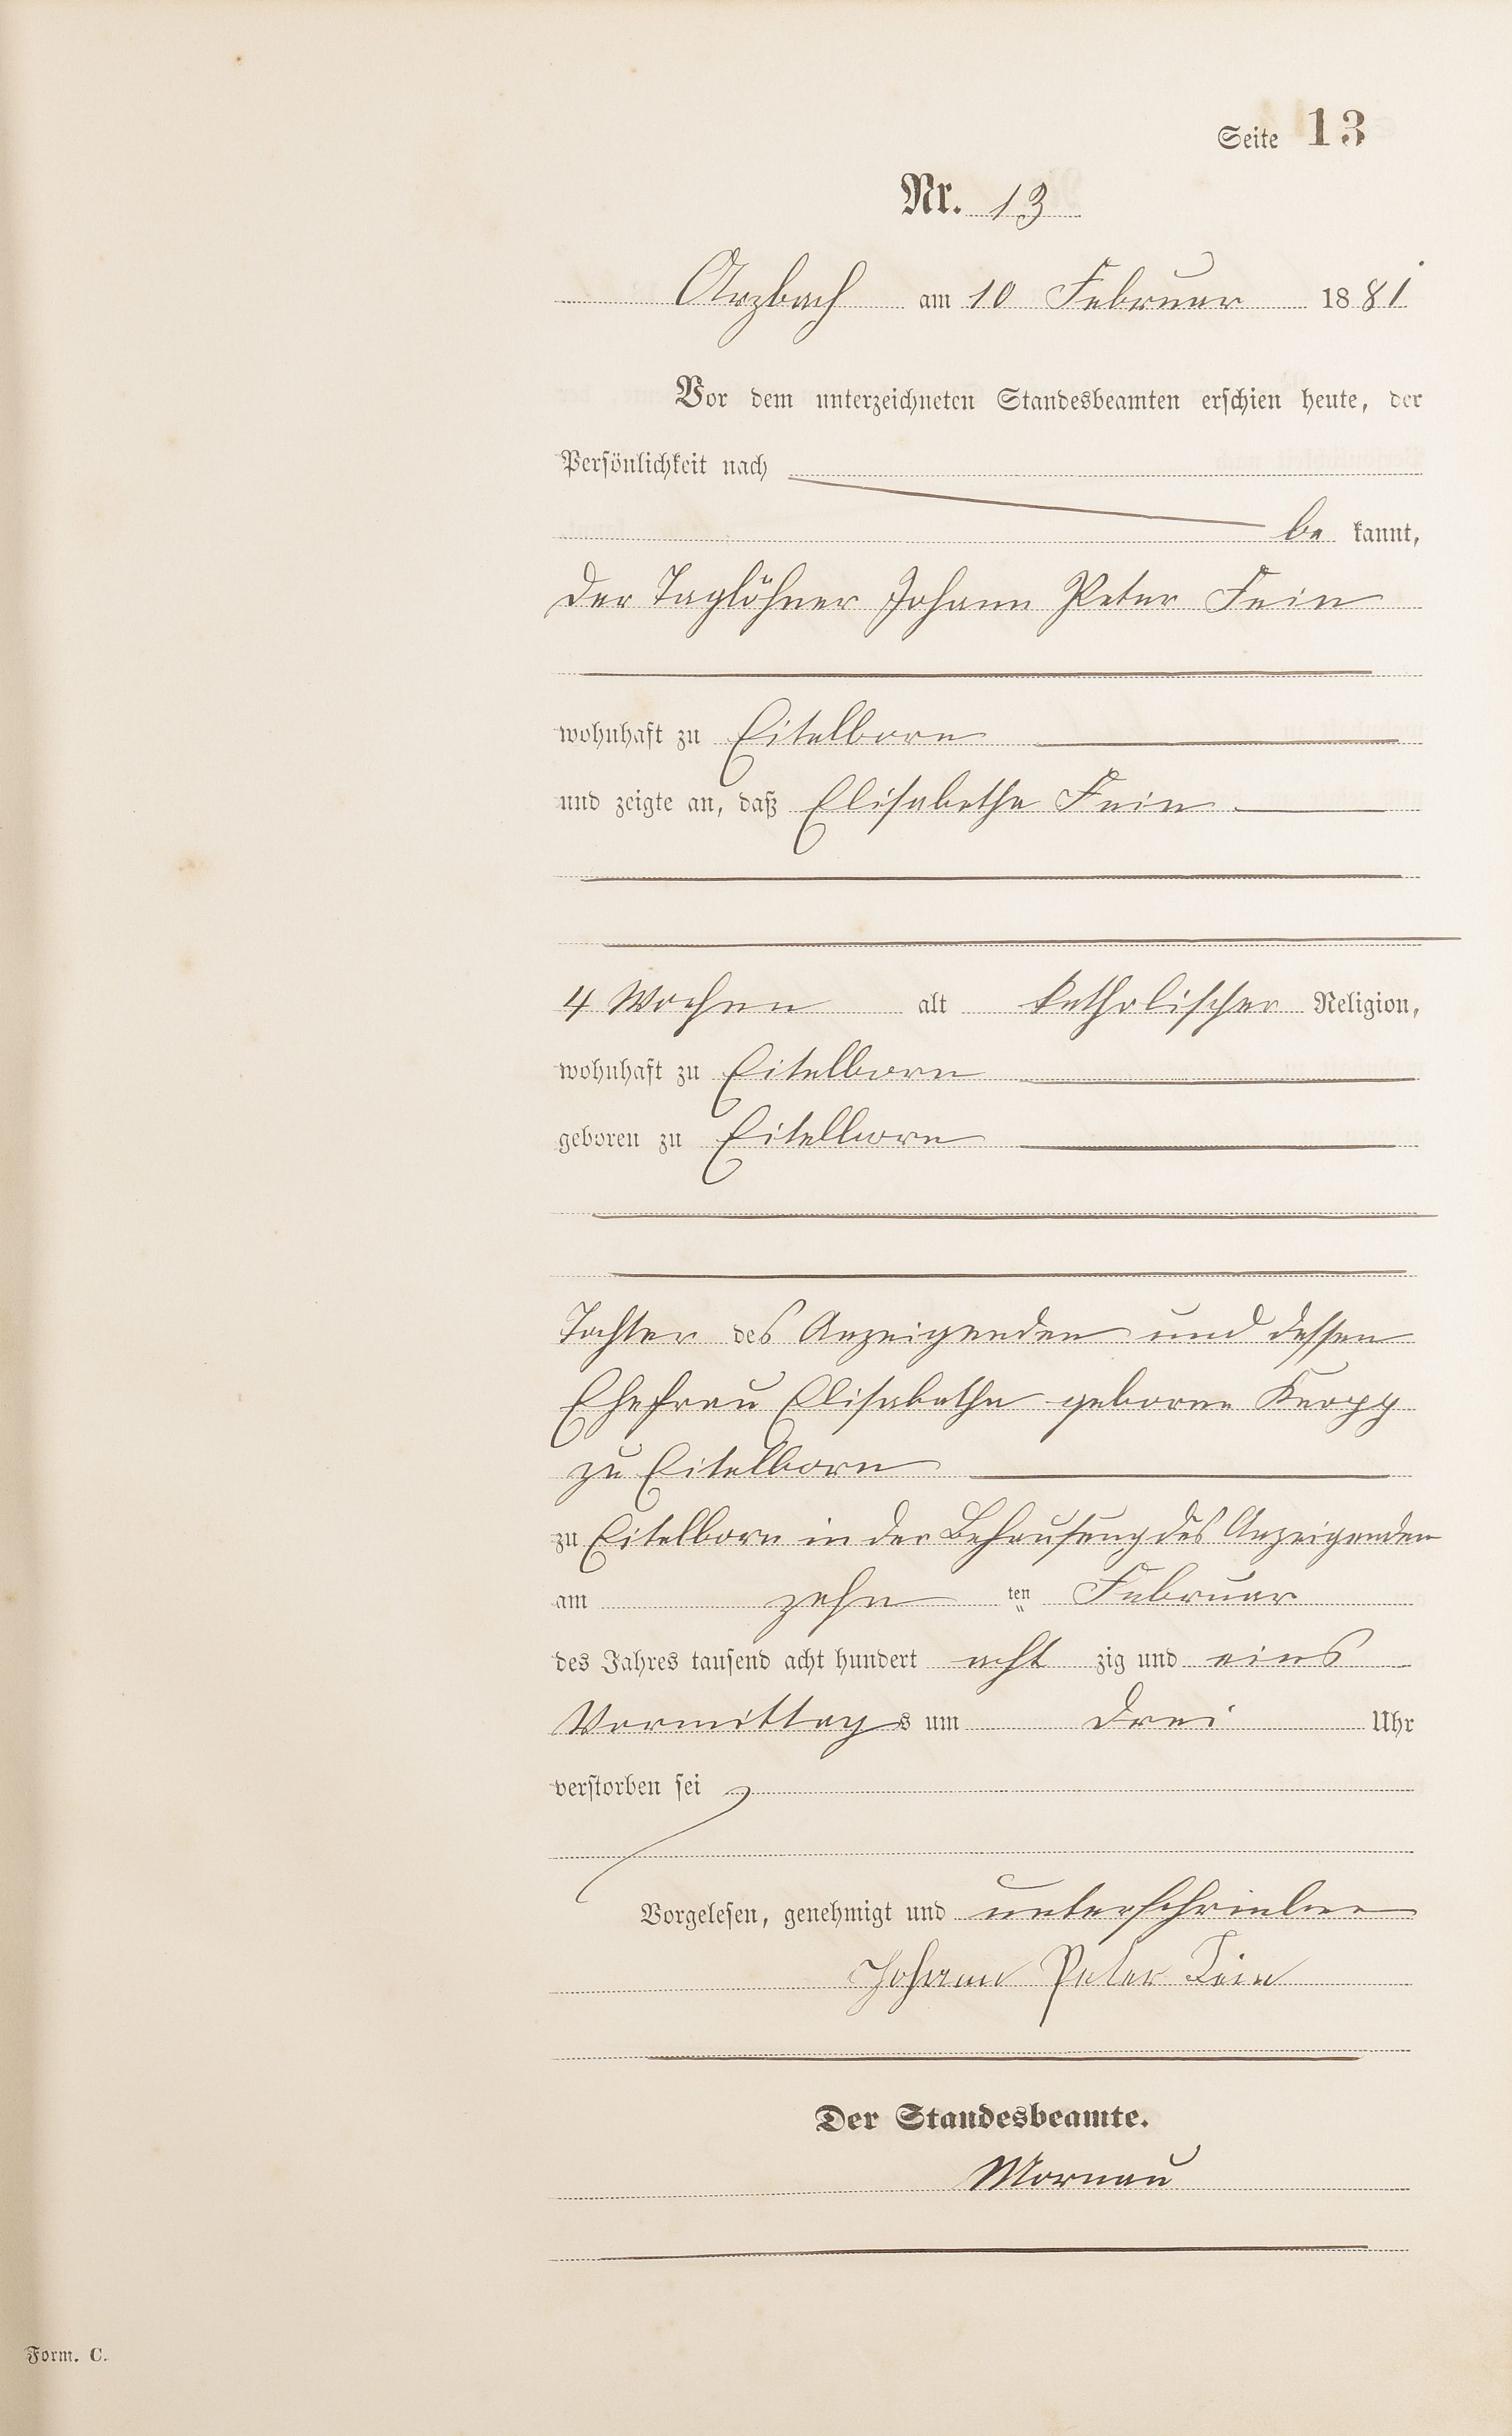 Seite 13
Nr. 13
Arzbach am 10 Februar 1881
Vor dem unterzeichneten Standesbeamten erschien heute, der
Persönlichkeit nach
be kannt,
der Taglöhner Johann Peter Fein
wohnhaft zu Eitelborn
und zeigte an, daß Elisabetha Fein
4 Wochen alt katholischer Religion,
wohnhaft zu Eitelborn
geboren zu Eitelborn
Tochter des Anzeigenden und dessen
Ehefrau Elisabetha geborne Knopp
zu Eitelborn
zu Eitelborn in der Behausung des Anzeigenden
am zehn ten Februar
des Jahres tausend acht hundert acht zig und eins
Vormittags um drei Uhr
verstorben sei
Vorgelesen, genehmigt und unterschrieben
Johann Peter Fein
Der Standesbeamte.
Mornau
Form. C.